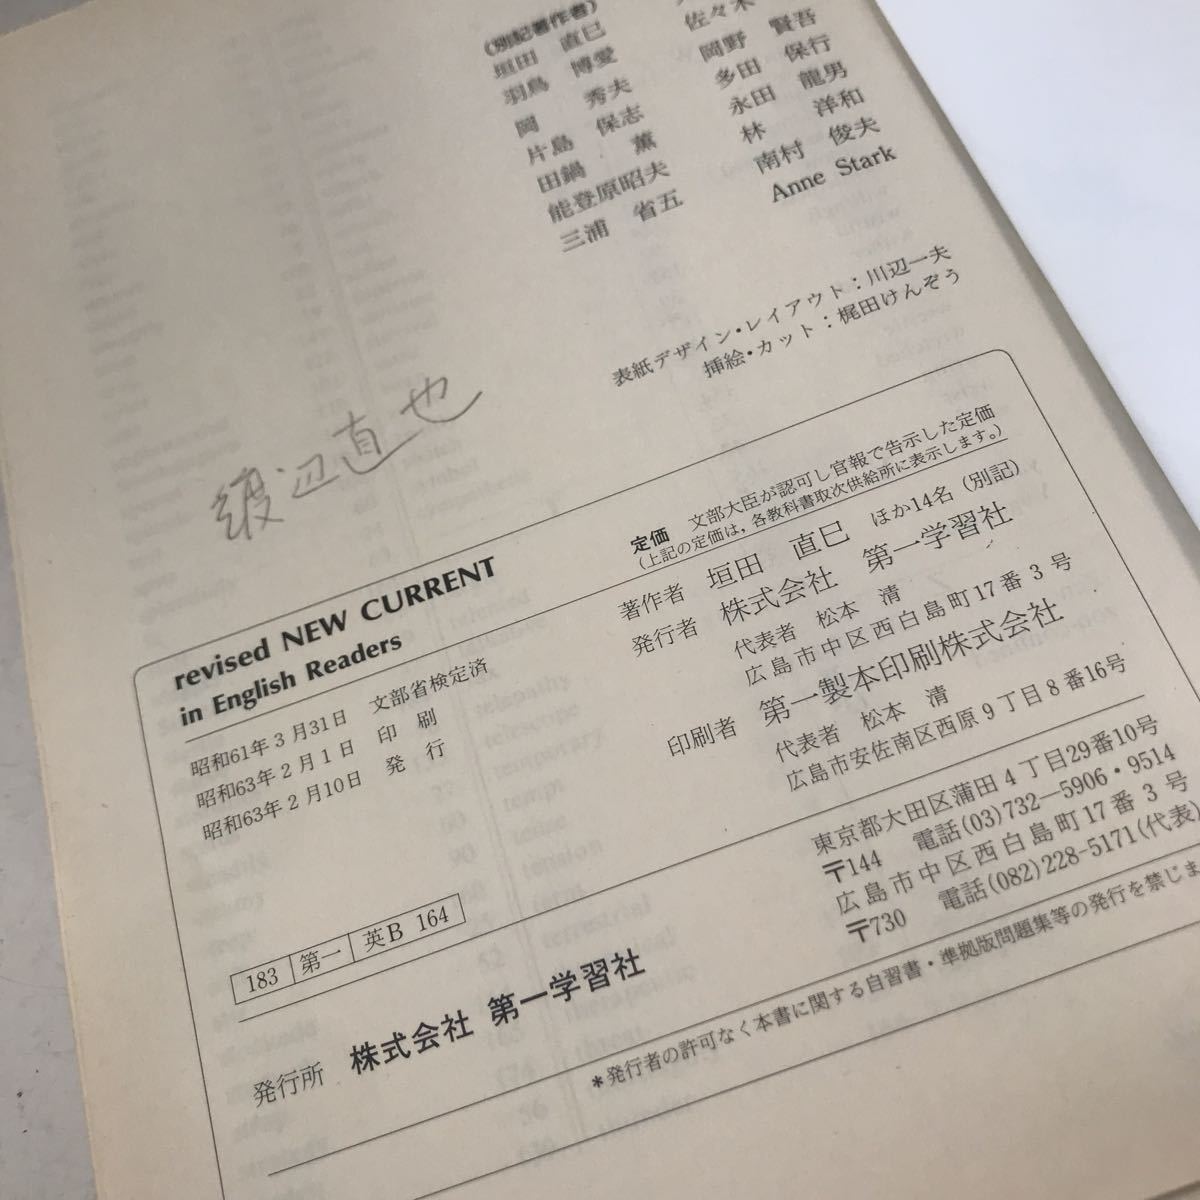 (別記著作者)
垣田 直巳
佐々木
羽鳥 博愛
岡野 賢吾
岡 秀夫
多田 保行
片島 保志
永田 龍男
田鍋 薫
林 洋和
能登原昭夫
南村 俊夫
三浦 省五
Anne Stark
表紙デザイン・レイアウト:川辺一夫
挿絵・カット:梶田けんぞう
渡辺直也
revised NEW CURRENT
in English Readers
昭和61年3月31日 文部省検定済
昭和63年2月1日 印刷
昭和63年2月10日 発行
定価 文部大臣が認可し官報で告示した定価
(上記の定価は,各教科書取次供給所に表示します。)
著作者 垣田 直巳 ほか14名(別記)
発行者 株式会社 第一学習社
代表者 松本 清
広島市中区西白島町17番3号
印刷者 第一製本印刷株式会社
代表者 松本 清
広島市安佐南区西原9丁目8番16号
183 第一 英B 164
発行所 株式会社 第一学習社
東京都大田区蒲田4丁目29番10号
〒144 電話(03)732―5906・9514
広島市中区西白島町17番3号
〒730 電話(082)228-5171(代表)
*発行者の許可なく本書に関する自習書・準拠版問題集等の発行を禁じま